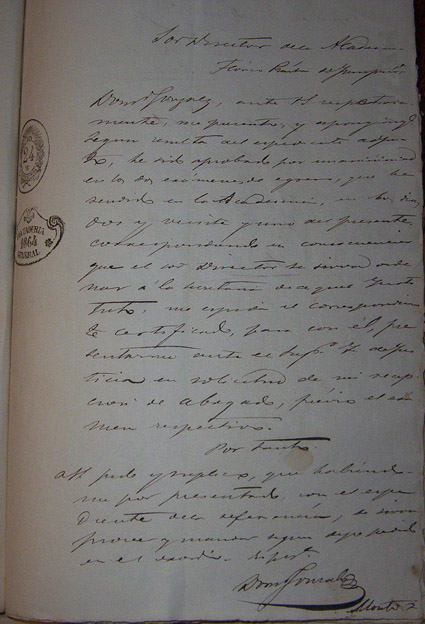 Sor Director de la Academia
Teórico Práctica de Jurisprud.
Dom.º Gonzalez, ante VS respetuosa-
mente, me presento, y expongo: q.
segun resulta del expediente adjun-
to, he sido aprobado por unanimidad
en los dos exámenes de egreso, que he
rendido en la Academia, en los dias
dos y veinte y uno del presente,
correspondiendo en consecuencia
que el sor Director se sirva orde-
nar á la secretaria de aquel Insti-
tuto, me expida el correspondien-
te certificado, para con él, pre-
sentarme ante el Sup.r T. de Jus-
ticia en solicitud de mi recep-
cion de Abogado, prévio el exa-
men respectivo.
Por tanto
A VS pido y suplico, que habiendo-
me por presentado, con el expe-
diente de la referencia, se sirva
proveer y mandar segun dejo pedido
en el exordio.
Dom.º Gonzalez
24
TESORERIA
1864
GENERAL